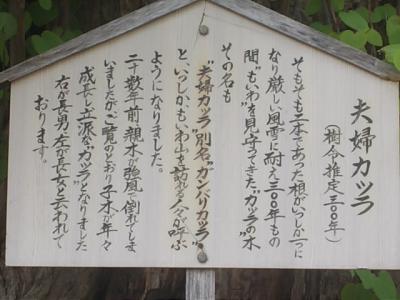 夫婦カツラ
（樹令推定三〇〇年）
そもそも二本であった根がいつしか一つに
なり厳しい風雪に耐え三〇〇年もの
間”もいわ”を見守ってきた”カツラの木”
その名も
”夫婦カツラ”別名”ガンバリカツラ”
と、いつしか、もいわ山を訪れる人々が呼ぶ
ようになりました。
二十数年前親木が強風で倒れてしま
いましたがご覧のとおり子木が年々
成長し立派な”カツラ”となりました
右が長男、左が長女と云われて
おります。